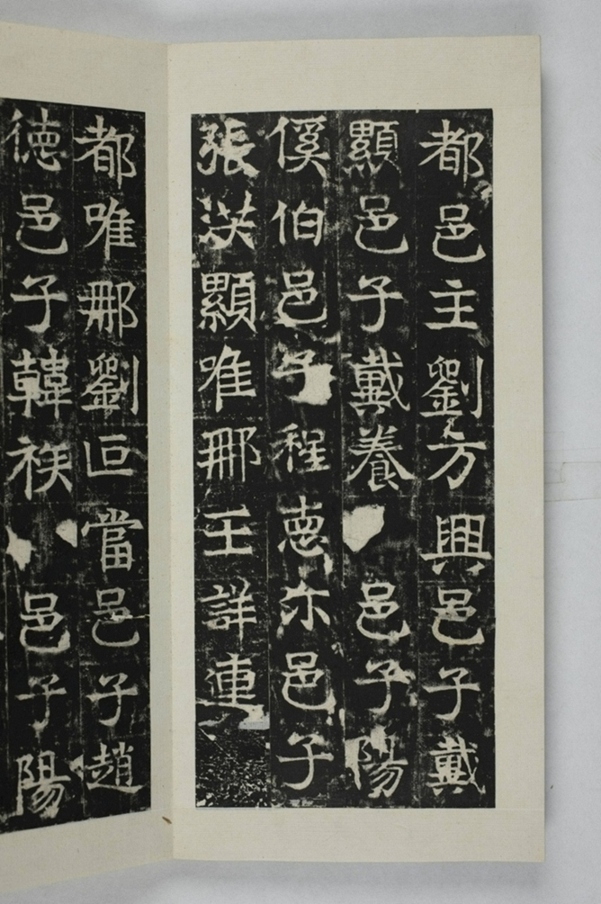 都邑主劉方興邑子戴
顯邑子戴養邑子陽
傒伯邑子程悳尒邑子
張洪顯唯那王詳連
都唯那劉叵當邑子趙
徳邑子韓袟邑子陽